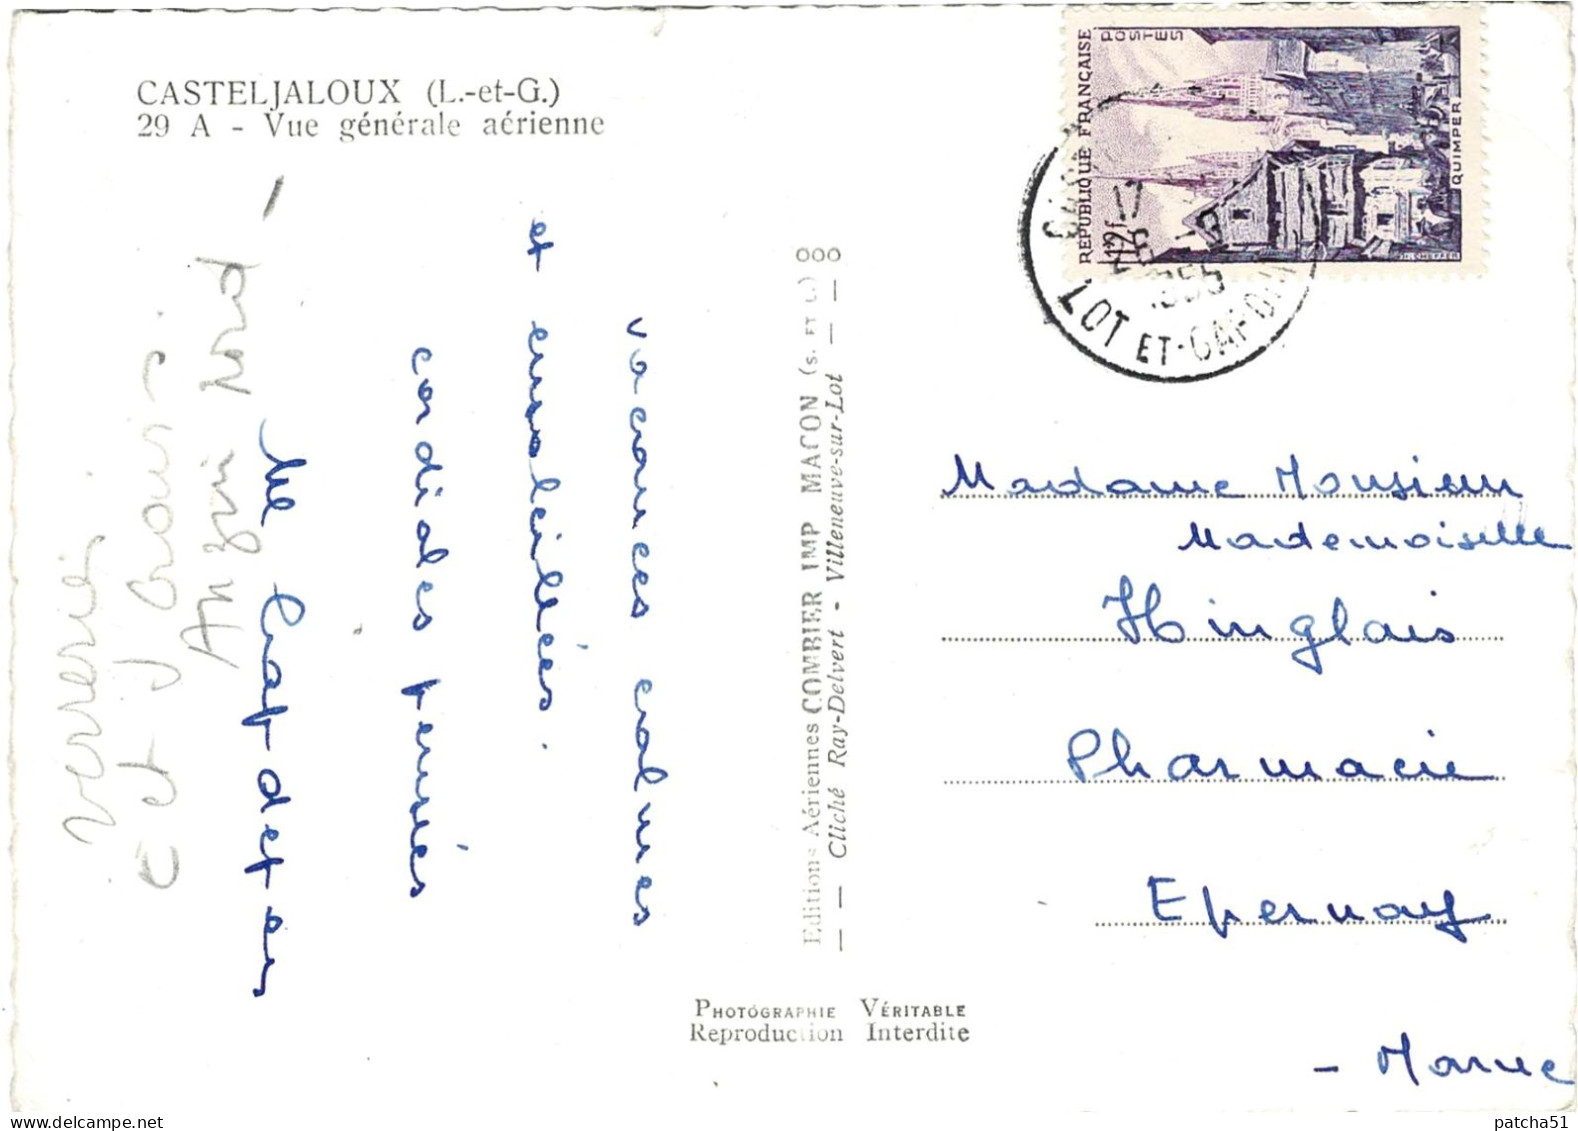 CASTELJALOUX (L.-et-G.)
29 A - Vue générale aérienne
vacances calmes
et ensoleillées.
cordiales pensées
Verrerie
et
Anzin Nord
Editions Aériennes COMBIER IMP MACON (S. ET L.) 000
— Cliché Ray-Delvert - Villeneuve-sur-Lot —
PHOTOGRAPHIE VÉRITABLE
Reproduction Interdite
RÉPUBLIQUE FRANÇAISE
POSTES
12f
QUIMPER
17
1955
LOT ET-GARONNE
Madame Monsieur
Mademoiselle
Hinglais
Pharmacie
Epernay
- Marne
patcha51